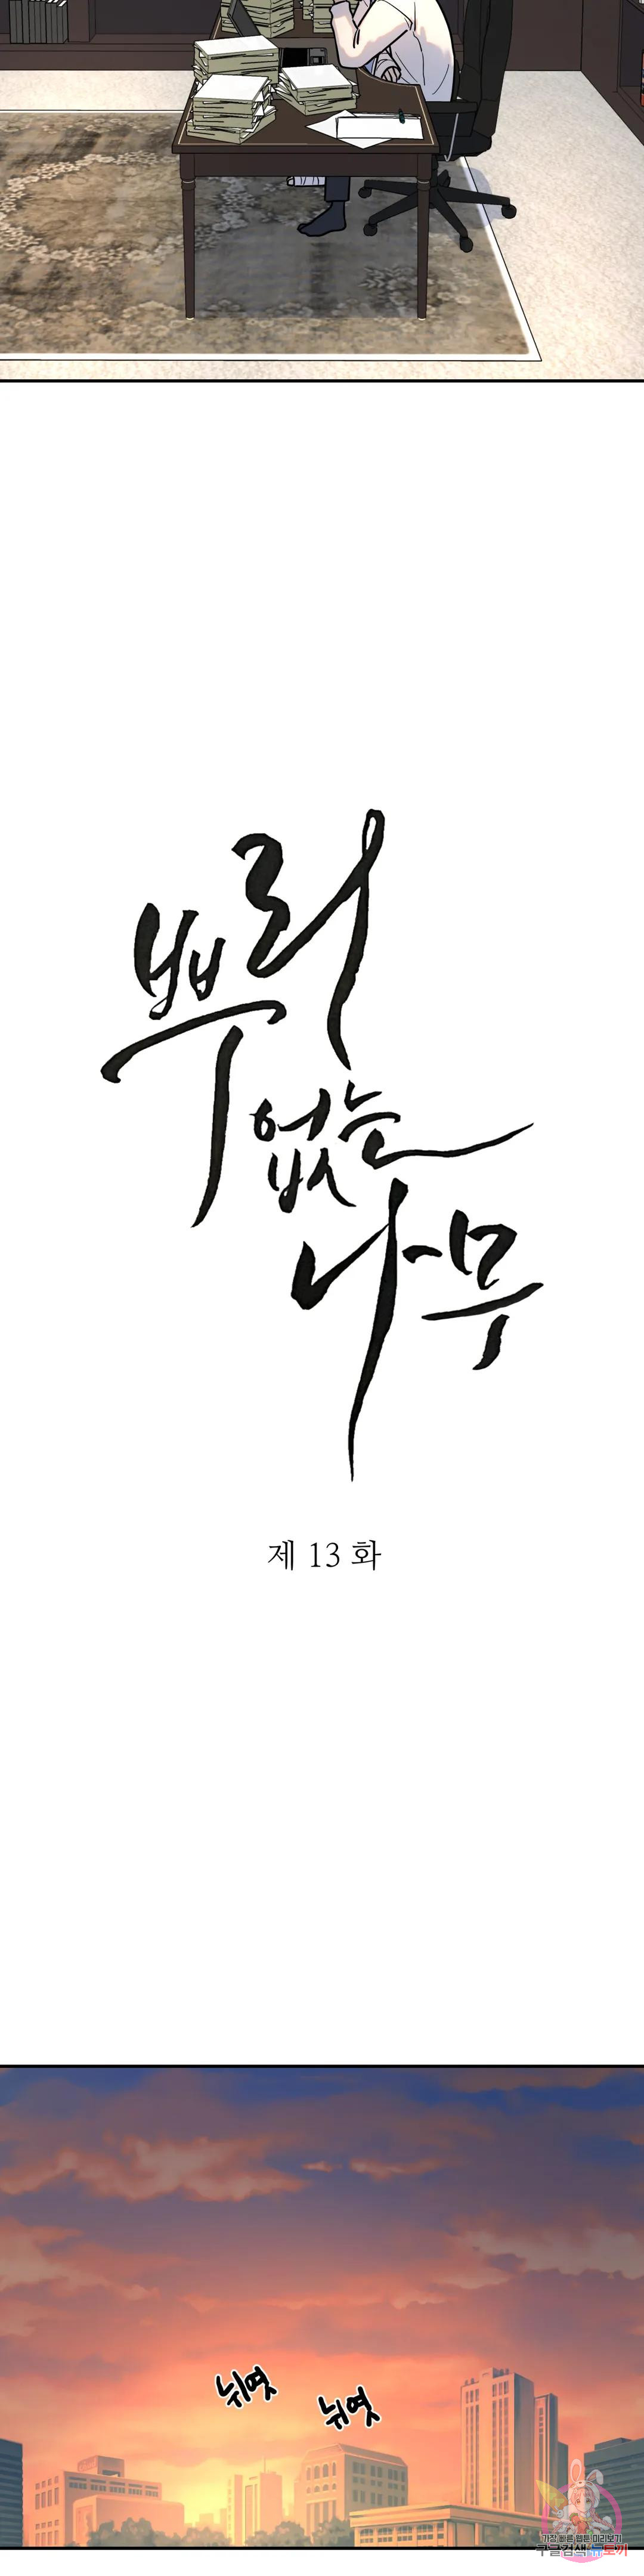 뿌리
없는
나무
제 13 화
뉘엿
뉘엿
가장 빠른 웹툰 미리보기
구글검색 뉴토끼